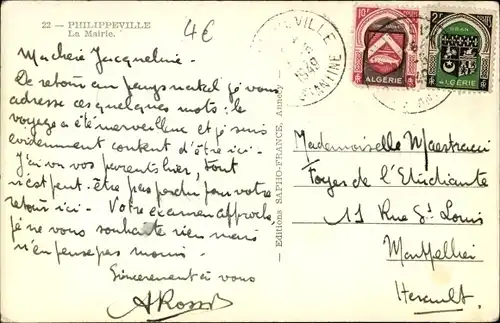 22 — PHILIPPEVILLE
La Mairie.
4€
Ma chère Jacqueline.
De retour au pays natal je vous
adresse ces quelques mots : le
voyage a été merveilleux et je suis
évidemment content d'être ici.
J'ai vu vos parents hier, tout
n'est peut-être pas perdu pour votre
retour ici. Votre examen approche,
je ne vous souhaite rien mais
n'en pense pas moins.
Sincèrement à vous
ARossi
Editions SAPHO-FRANCE, Annecy
PHILIPPEVILLE
1949
CONSTANTINE
10f
ALGÉRIE
ORAN
ALGÉRIE
Mademoiselle Maestracci
Foyer de l'Etudiante
11 Rue St Louis
Montpellier
Herault.